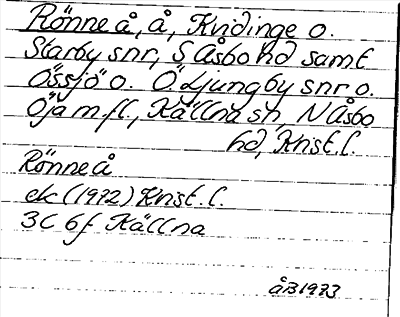 Rönne å, å, Kvidinge o.
Starby snr, S Åsbo hd samt
Össjö o. Ö Ljungby snr o.
Öja m.fl., Källna sn, N Åsbo
hd, Krist. l.
Rönne å
ek (1972) Krist. l.
3C 6f Källna
ÅB 1973